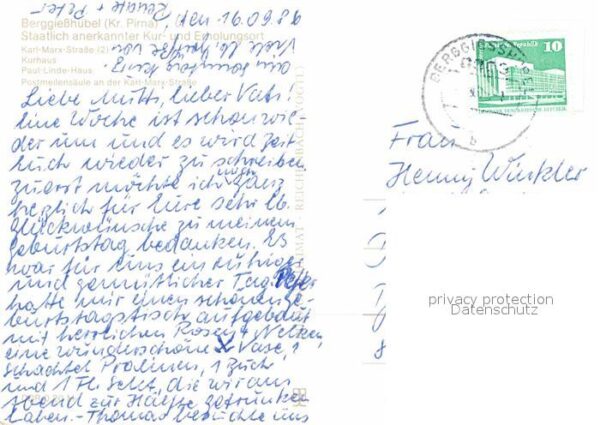 Berggießhübel (Kr. Pirna)
Staatlich anerkannter Kur- und Erholungsort
Karl-Marx-Straße (2)
Kurhaus
Paul-Linde-Haus
Postmeilensäule an der Karl-Marx-Straße
, den 16.09.86
Liebe Mutti, lieber Vati!
Eine Woche ist schon wie-
der um und es wird Zeit
Euch wieder zu schreiben
zuerst möchte ich mich ganz
herzlich für Eure sehr lb.
Glückwünsche zu meinem
Geburtstag bedanken. Es
war für uns ein ruhiger
und gemütlicher Tag. Peter
hatte mir einen schönen Ge-
burtstagstisch aufgebaut
mit herrlichen Rosen + Nelken
eine wunderschöne Vase, 1
Schachtel Pralinen, 1 Buch
und 1 Fl. Sekt, die wir am
Abend zur Hälfte getrunken
haben. - Thomas besuchte uns
am Sonntag
Viele lb. Grüße von
Renate + Peter
BERGGIESSHÜBEL
10
Frau
Henny Winkler
privacy protection
Datenschutz